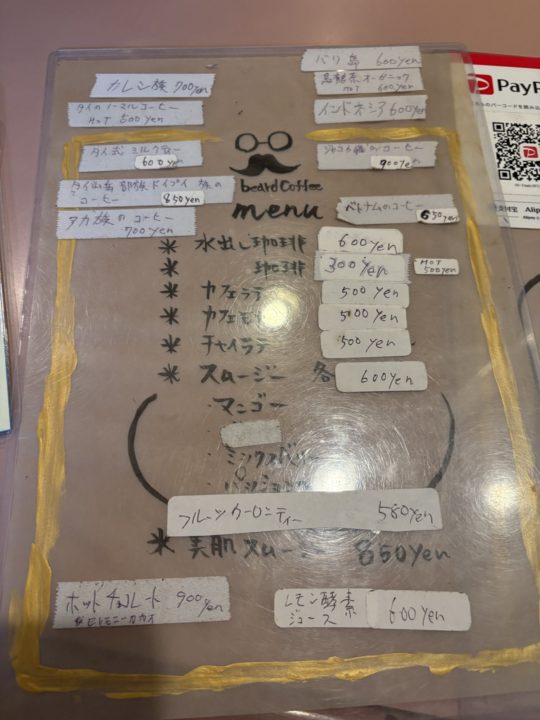 カレン族 700yen
バリ島 600yen
タイのノーマルコーヒー
HOT 500yen
オーガニック
HOT 600yen
インドネシア 600yen
タイ式 ミルクティー
600yen
コーヒー
900yen
beard Coffee
menu
族の
コーヒー 850yen
ベトナムのコーヒー
650yen
アカ族のコーヒー
700yen
* 水出し珈琲 600yen
* 珈琲 300yen
HOT
500yen
* カフェラテ 500yen
* カフェモカ 500yen
* チャイラテ 500yen
* スムージー 各 600yen
・マンゴー
・ミックスベリー
・パッション
フルーツ ティー 580yen
* 美肌スムージー 850yen
ホットチョコレート 900yen
セレモニーカカオ
レモン酵素
ジュース 600yen
PayP
Alip